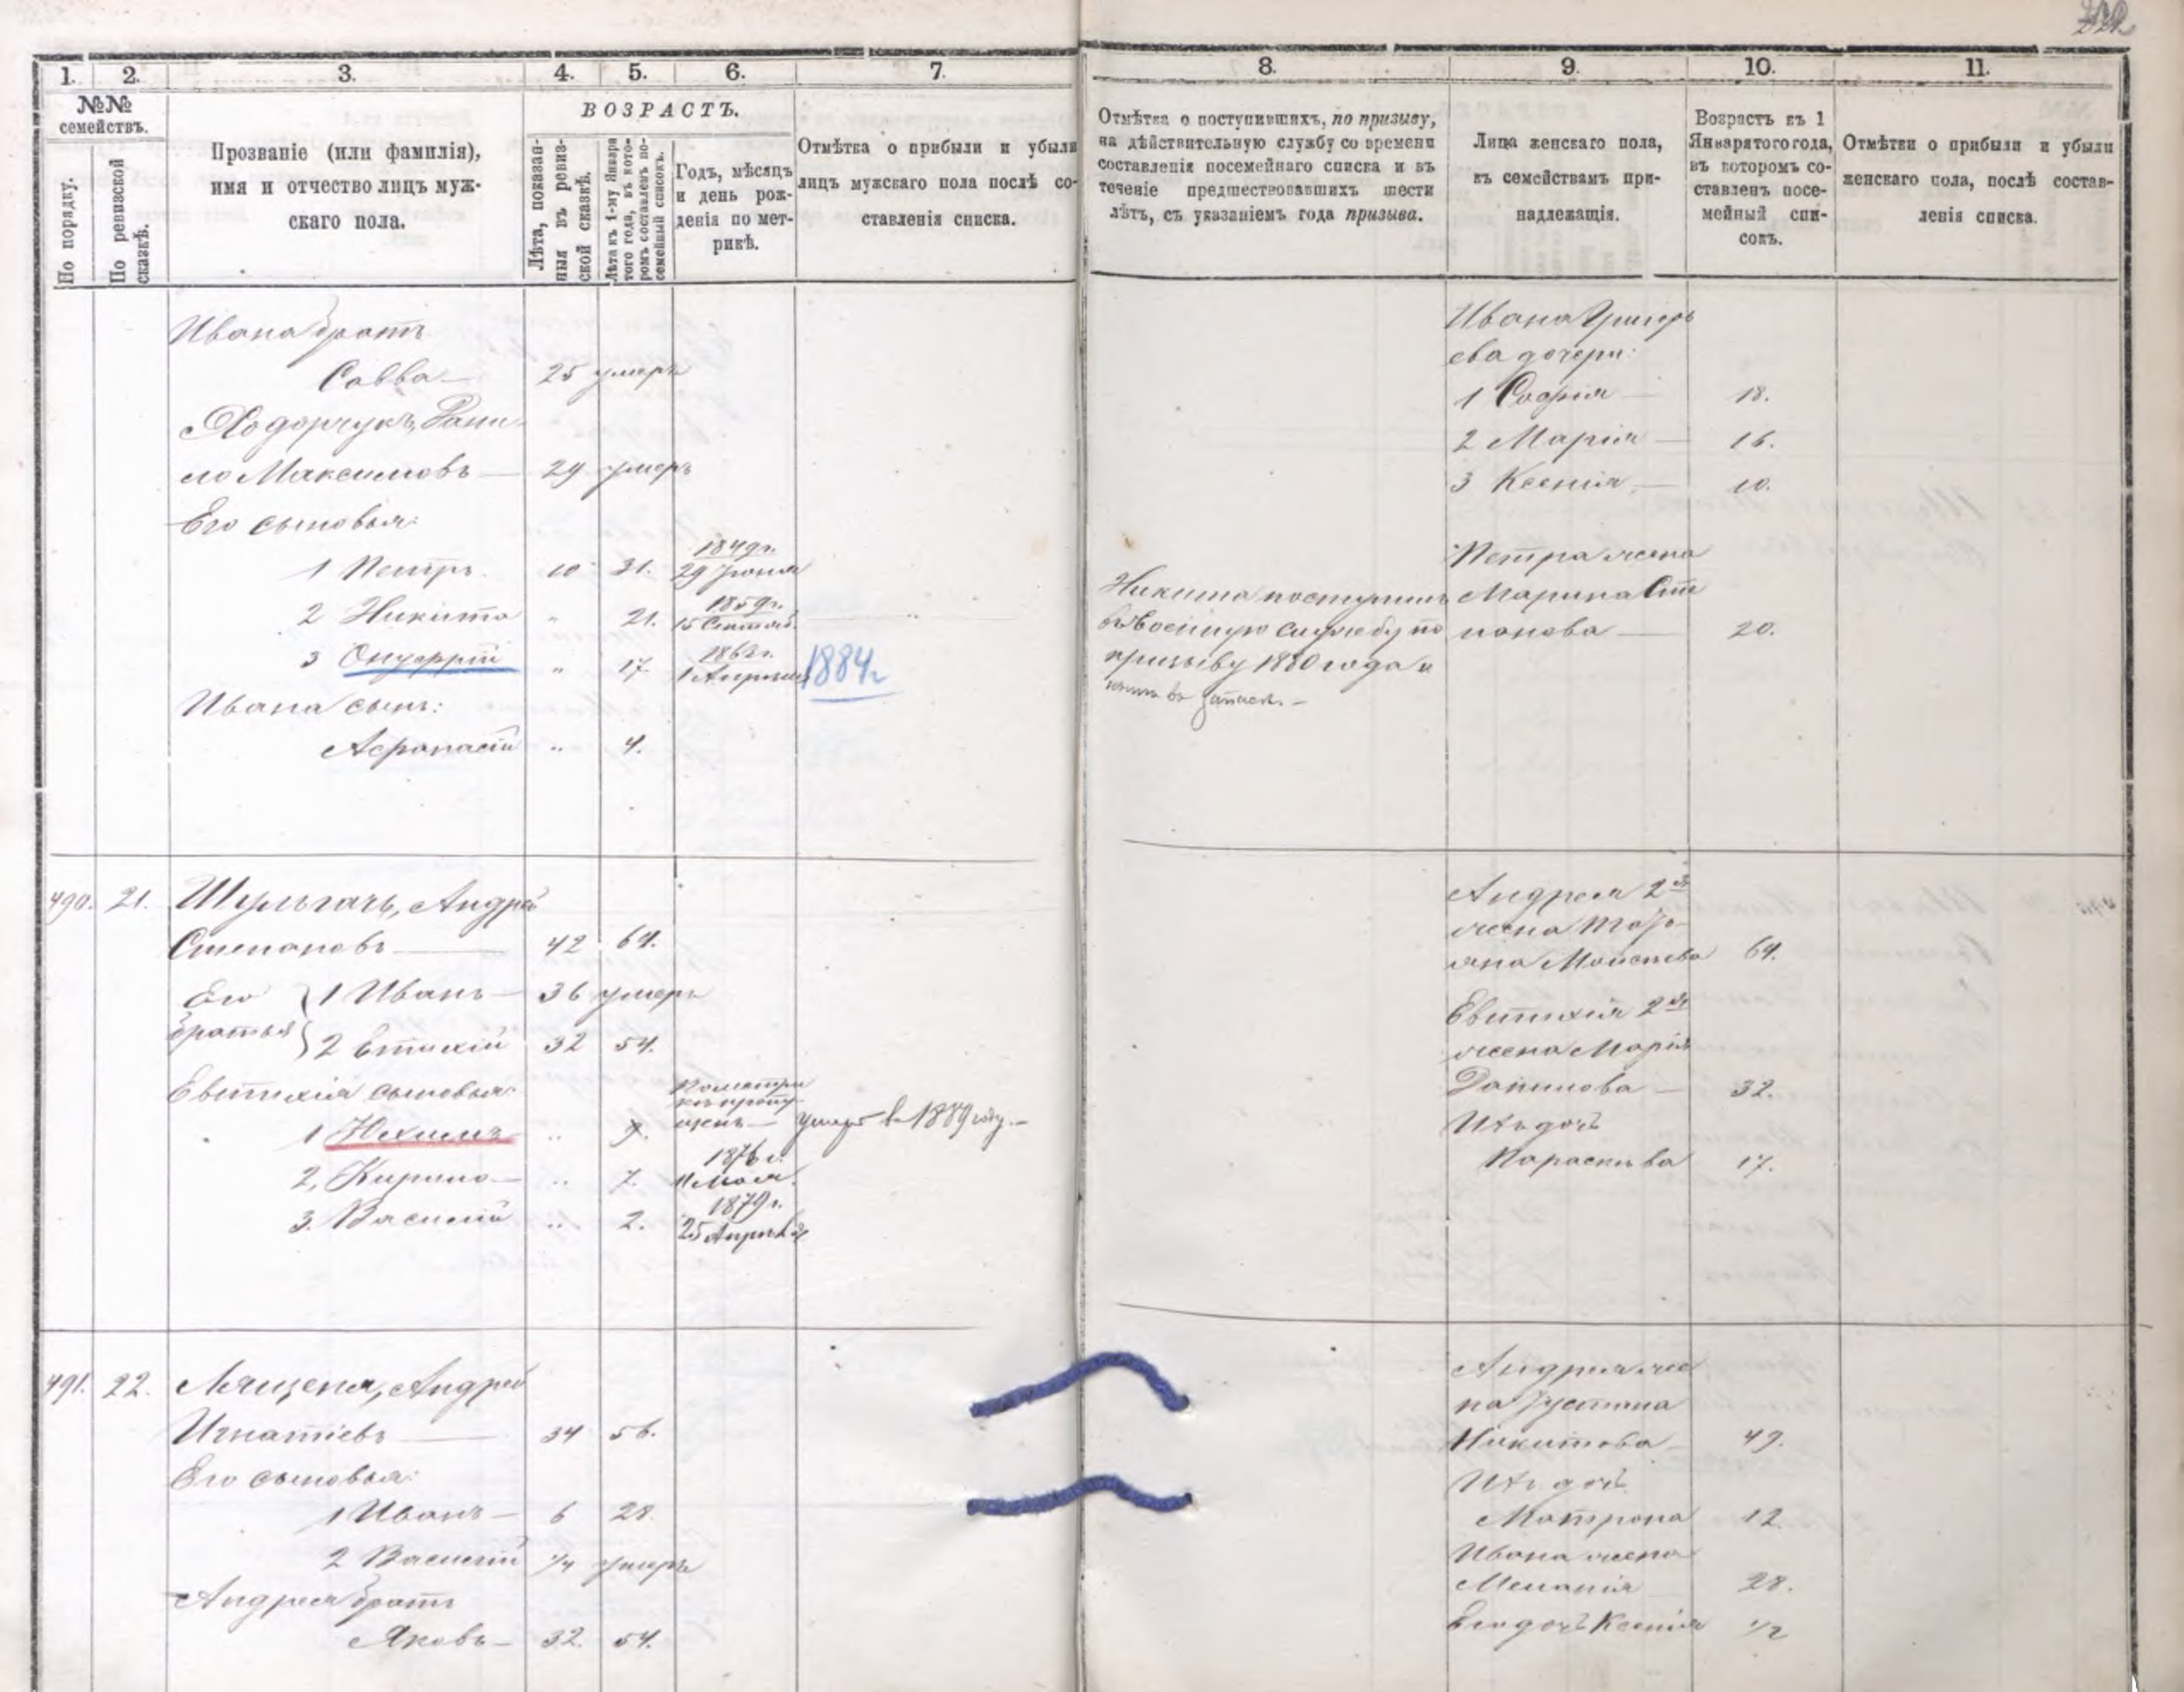 1. 2. 3. 4. 5. 6. 7.
№№ семействъ.
По порядку.
По ревизской сказкѣ.
Прозваніе (или фамилія),
имя и отчество лицъ муж-
скаго пола.
ВОЗРАСТЪ.
Лѣта, показан-
ныя въ ревиз-
ской сказкѣ.
Лѣта къ 1-му января
того года, въ кото-
ромъ составленъ по-
семейный списокъ.
Годъ, мѣсяцъ
и день рож-
денія по мет-
рикѣ.
Отмѣтка о прибыли и убыли
лицъ мужскаго пола послѣ со-
ставленія списка.
Ивана братъ
Савва — 25 умеръ
Ходорчукъ, Дани-
ло Максимовъ — 29 умеръ
Его сыновья:
1 Петръ 10 31. 1849г. 29 Іюня
2 Никита " 21. 1859г. 15 Сентяб.
3 Онуфрій " 17 1863г. 1 Апрѣля 1884г
Ивана сынъ:
Афанасій " 4.
490. 21. Шульгачъ, Андрей
Степановъ — 42 64.
Его братья
1 Иванъ — 36 умеръ
2 Евтихій 32 54.
Евтихія сыновья:
1 " 9. По метри
кѣ пропу-
щенъ — умеръ в 1889 году. —
2, Кирило — " 7. 1876 г. 11 Мая.
3. Василій " 2. 1879г. 25 Апрѣля
491. 22. Лященя, Андрей
Игнатіевъ — 34 56.
Его сыновья:
1 Иванъ — 6 28.
2 Василій 1/4 умеръ
Андрея братъ
Яковъ — 32. 54.
8. 9. 10. 11.
Отмѣтка о поступившихъ, по призыву,
на дѣйствительную службу со времени
составленія посемейнаго списка и въ
теченіе предшествовавшихъ шести
лѣтъ, съ указаніемъ года призыва.
Лица женскаго пола,
къ семействамъ при-
надлежащія.
Возрастъ къ 1
Января того года,
въ которомъ со-
ставленъ посе-
мейный спи-
сокъ.
Отмѣтки о прибыли и убыли
женскаго пола, послѣ состав-
ленія списка.
Ивана Григорь
ева дочери:
1 Софія — 18.
2 Марія — 16.
3 Ксенія — 10.
Петра жена
Марина Сте
панова — 20.
Никита поступилъ
въ военную службу по
призыву 1880 года и
Андрея 2я
жена Тать-
яна Моисеева 64.
Евтихія 2я
жена Марія
Данилова — 32.
Ихъ дочь
Параскева 17.
Андрея же
на Устина
Никитова 49.
Ихъ дочь
Матрона 12.
Ивана жена
Меланія 28.
Его дочь Ксенія 1/2